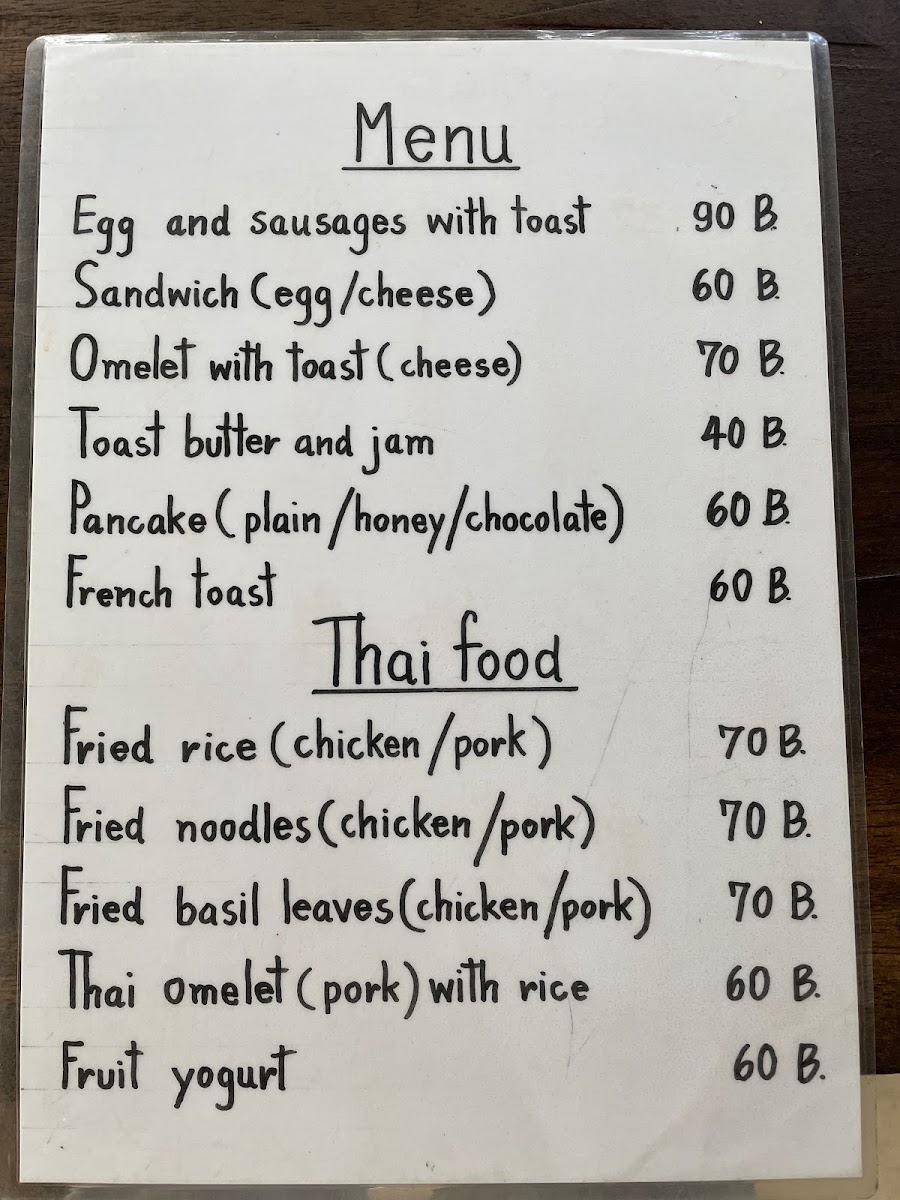 Menu
Egg and sausages with toast 90 B.
Sandwich (egg/cheese) 60 B.
Omelet with toast (cheese) 70 B.
Toast butter and jam 40 B.
Pancake (plain/honey/chocolate) 60 B.
French toast 60 B.
Thai food
Fried rice (chicken/pork) 70 B.
Fried noodles (chicken/pork) 70 B.
Fried basil leaves (chicken/pork) 70 B.
Thai omelet (pork) with rice 60 B.
Fruit yogurt 60 B.